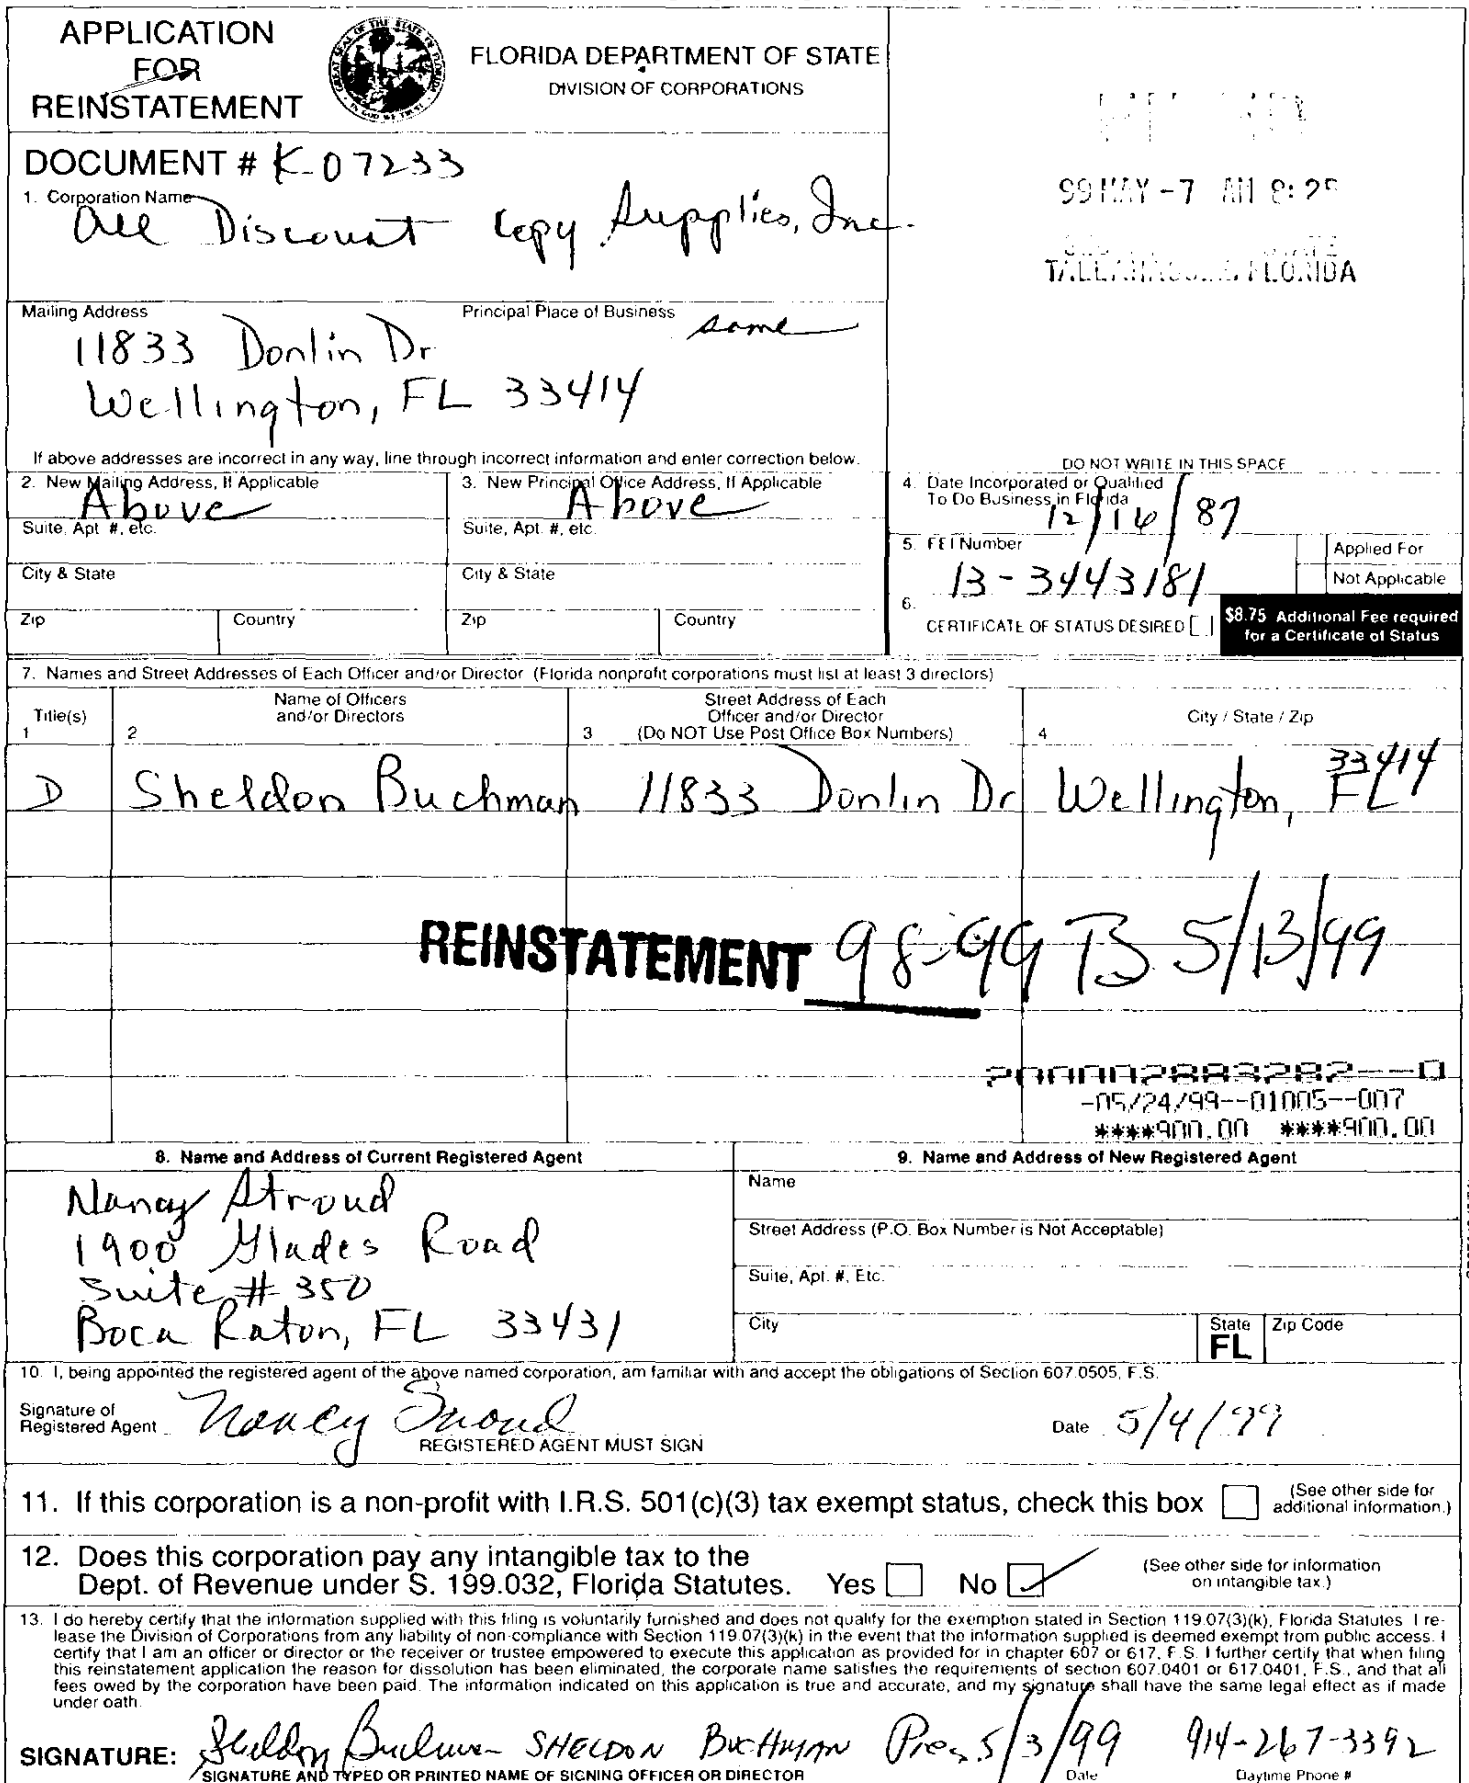 APPLICATION
FOR
REINSTATEMENT
GREAT SEAL OF THE STATE OF FLORIDA
IN GOD WE TRUST
FLORIDA DEPARTMENT OF STATE
DIVISION OF CORPORATIONS
DOCUMENT # K07233
1. Corporation Name
All Discount Copy Supplies, Inc.
99 MAY -7 AM 8:25
TALLAHASSEE, FLORIDA
Mailing Address
Principal Place of Business same
11833 Donlin Dr
Wellington, FL 33414
If above addresses are incorrect in any way, line through incorrect information and enter correction below.
DO NOT WRITE IN THIS SPACE
2. New Mailing Address, If Applicable
Above
3. New Principal Office Address, If Applicable
Above
4. Date Incorporated or Qualified
To Do Business in Florida
12/16/87
Suite, Apt. #, etc.
Suite, Apt. #, etc.
5. FEI Number
13-3443181
Applied For
Not Applicable
City & State
City & State
6.
CERTIFICATE OF STATUS DESIRED
$8.75 Additional Fee required
for a Certificate of Status
Zip
Country
Zip
Country
7. Names and Street Addresses of Each Officer and/or Director (Florida nonprofit corporations must list at least 3 directors)
Title(s)
1
Name of Officers
and/or Directors
2
Street Address of Each
Officer and/or Director
3 (Do NOT Use Post Office Box Numbers)
City / State / Zip
4
D Sheldon Buchman 11833 Donlin Dr Wellington, FL 33414
REINSTATEMENT 98-99 TB 5/13/99
200002883282--0
-05/24/99--01005--007
****900.00 ****900.00
8. Name and Address of Current Registered Agent
Nancy Stroud
1900 Glades Road
Suite # 350
Boca Raton, FL 33431
9. Name and Address of New Registered Agent
Name
Street Address (P.O. Box Number is Not Acceptable)
Suite, Apt. #, Etc.
City
State
FL
Zip Code
10. I, being appointed the registered agent of the above named corporation, am familiar with and accept the obligations of Section 607.0505, F.S.
Signature of
Registered Agent Nancy Stroud
REGISTERED AGENT MUST SIGN
Date 5/4/99
11. If this corporation is a non-profit with I.R.S. 501(c)(3) tax exempt status, check this box
(See other side for
additional information.)
12. Does this corporation pay any intangible tax to the
Dept. of Revenue under S. 199.032, Florida Statutes. Yes No
(See other side for information
on intangible tax.)
13. I do hereby certify that the information supplied with this filing is voluntarily furnished and does not qualify for the exemption stated in Section 119.07(3)(k), Florida Statutes. I re-
lease the Division of Corporations from any liability of non-compliance with Section 119.07(3)(k) in the event that the information supplied is deemed exempt from public access. I
certify that I am an officer or director or the receiver or trustee empowered to execute this application as provided for in chapter 607 or 617, F.S. I further certify that when filing
this reinstatement application the reason for dissolution has been eliminated, the corporate name satisfies the requirements of section 607.0401 or 617.0401, F.S., and that all
fees owed by the corporation have been paid. The information indicated on this application is true and accurate, and my signature shall have the same legal effect as if made
under oath.
SIGNATURE: Sheldon Buchman SHELDON BUCHMAN Pres. 5/3/99 914-267-3392
SIGNATURE AND TYPED OR PRINTED NAME OF SIGNING OFFICER OR DIRECTOR
Date
Daytime Phone #